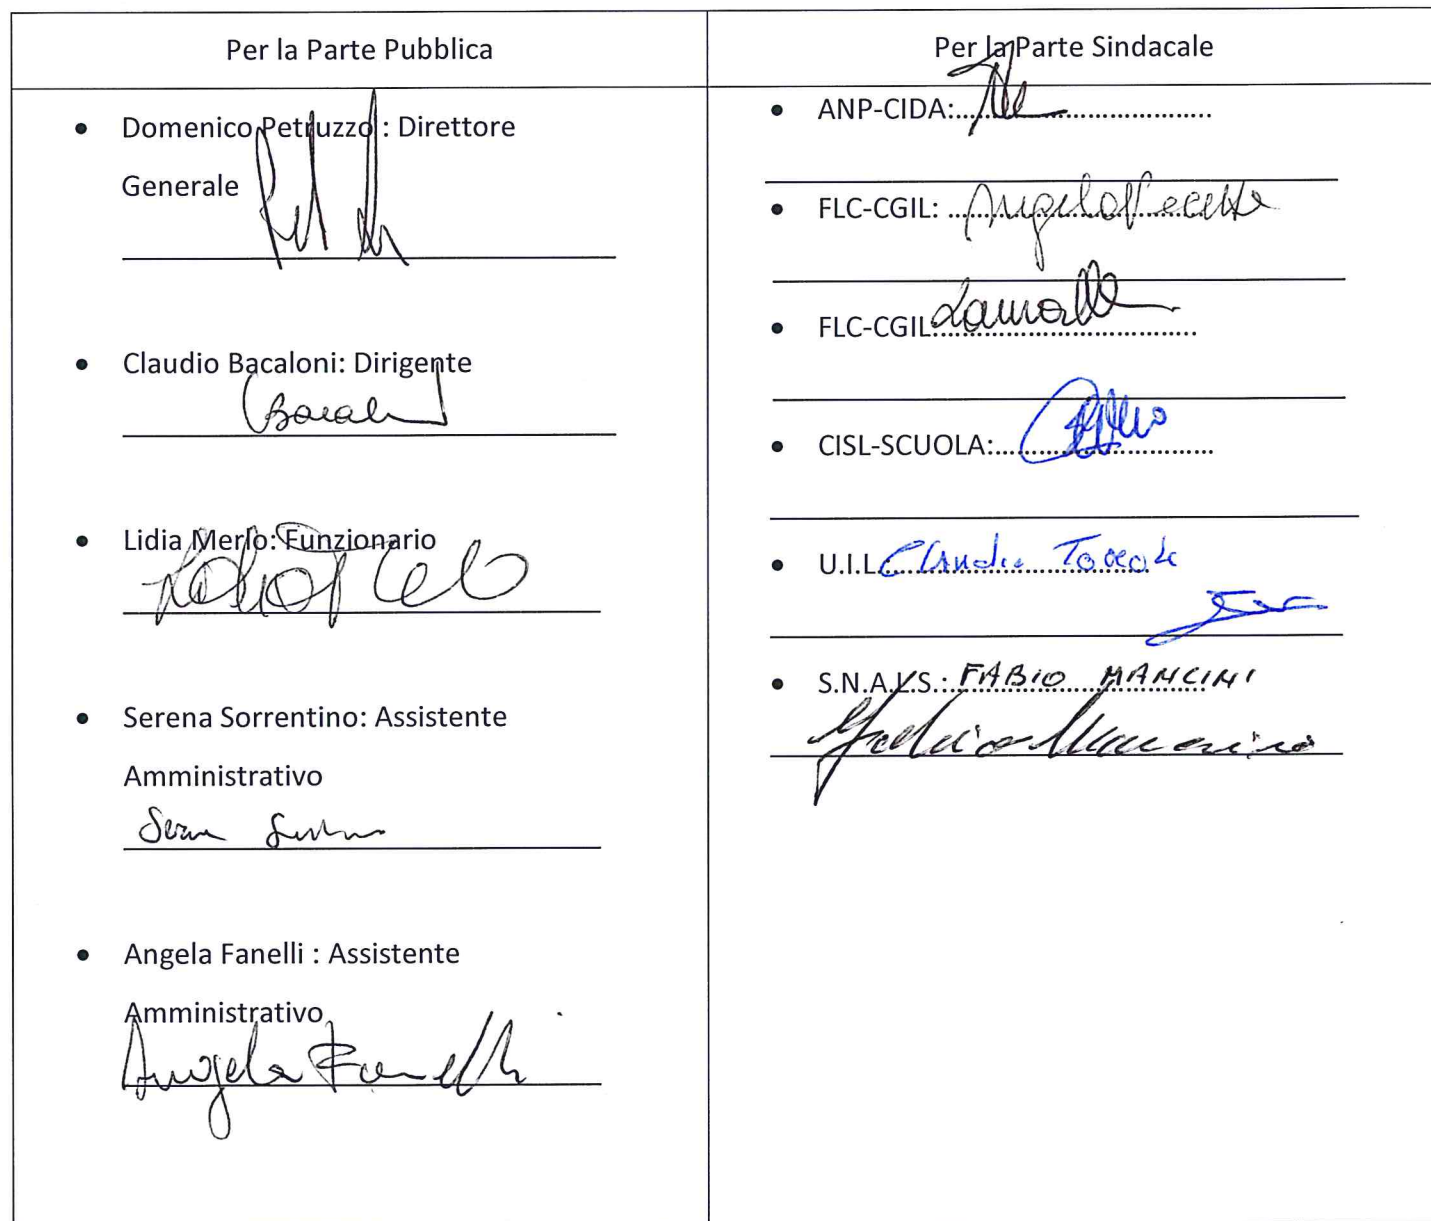 Per la Parte Pubblica
Domenico Petruzzo : Direttore
Generale
Claudio Bacaloni: Dirigente
Lidia Merlo: Funzionario
Serena Sorrentino: Assistente
Amministrativo
Angela Fanelli : Assistente
Amministrativo
Angela Fanelli
Per la Parte Sindacale
ANP-CIDA:
FLC-CGIL: Angelo
FLC-CGIL:
CISL-SCUOLA:
U.I.L Claudia
S.N.A.L.S.: FABIO MANCINI
Fabio Mancini